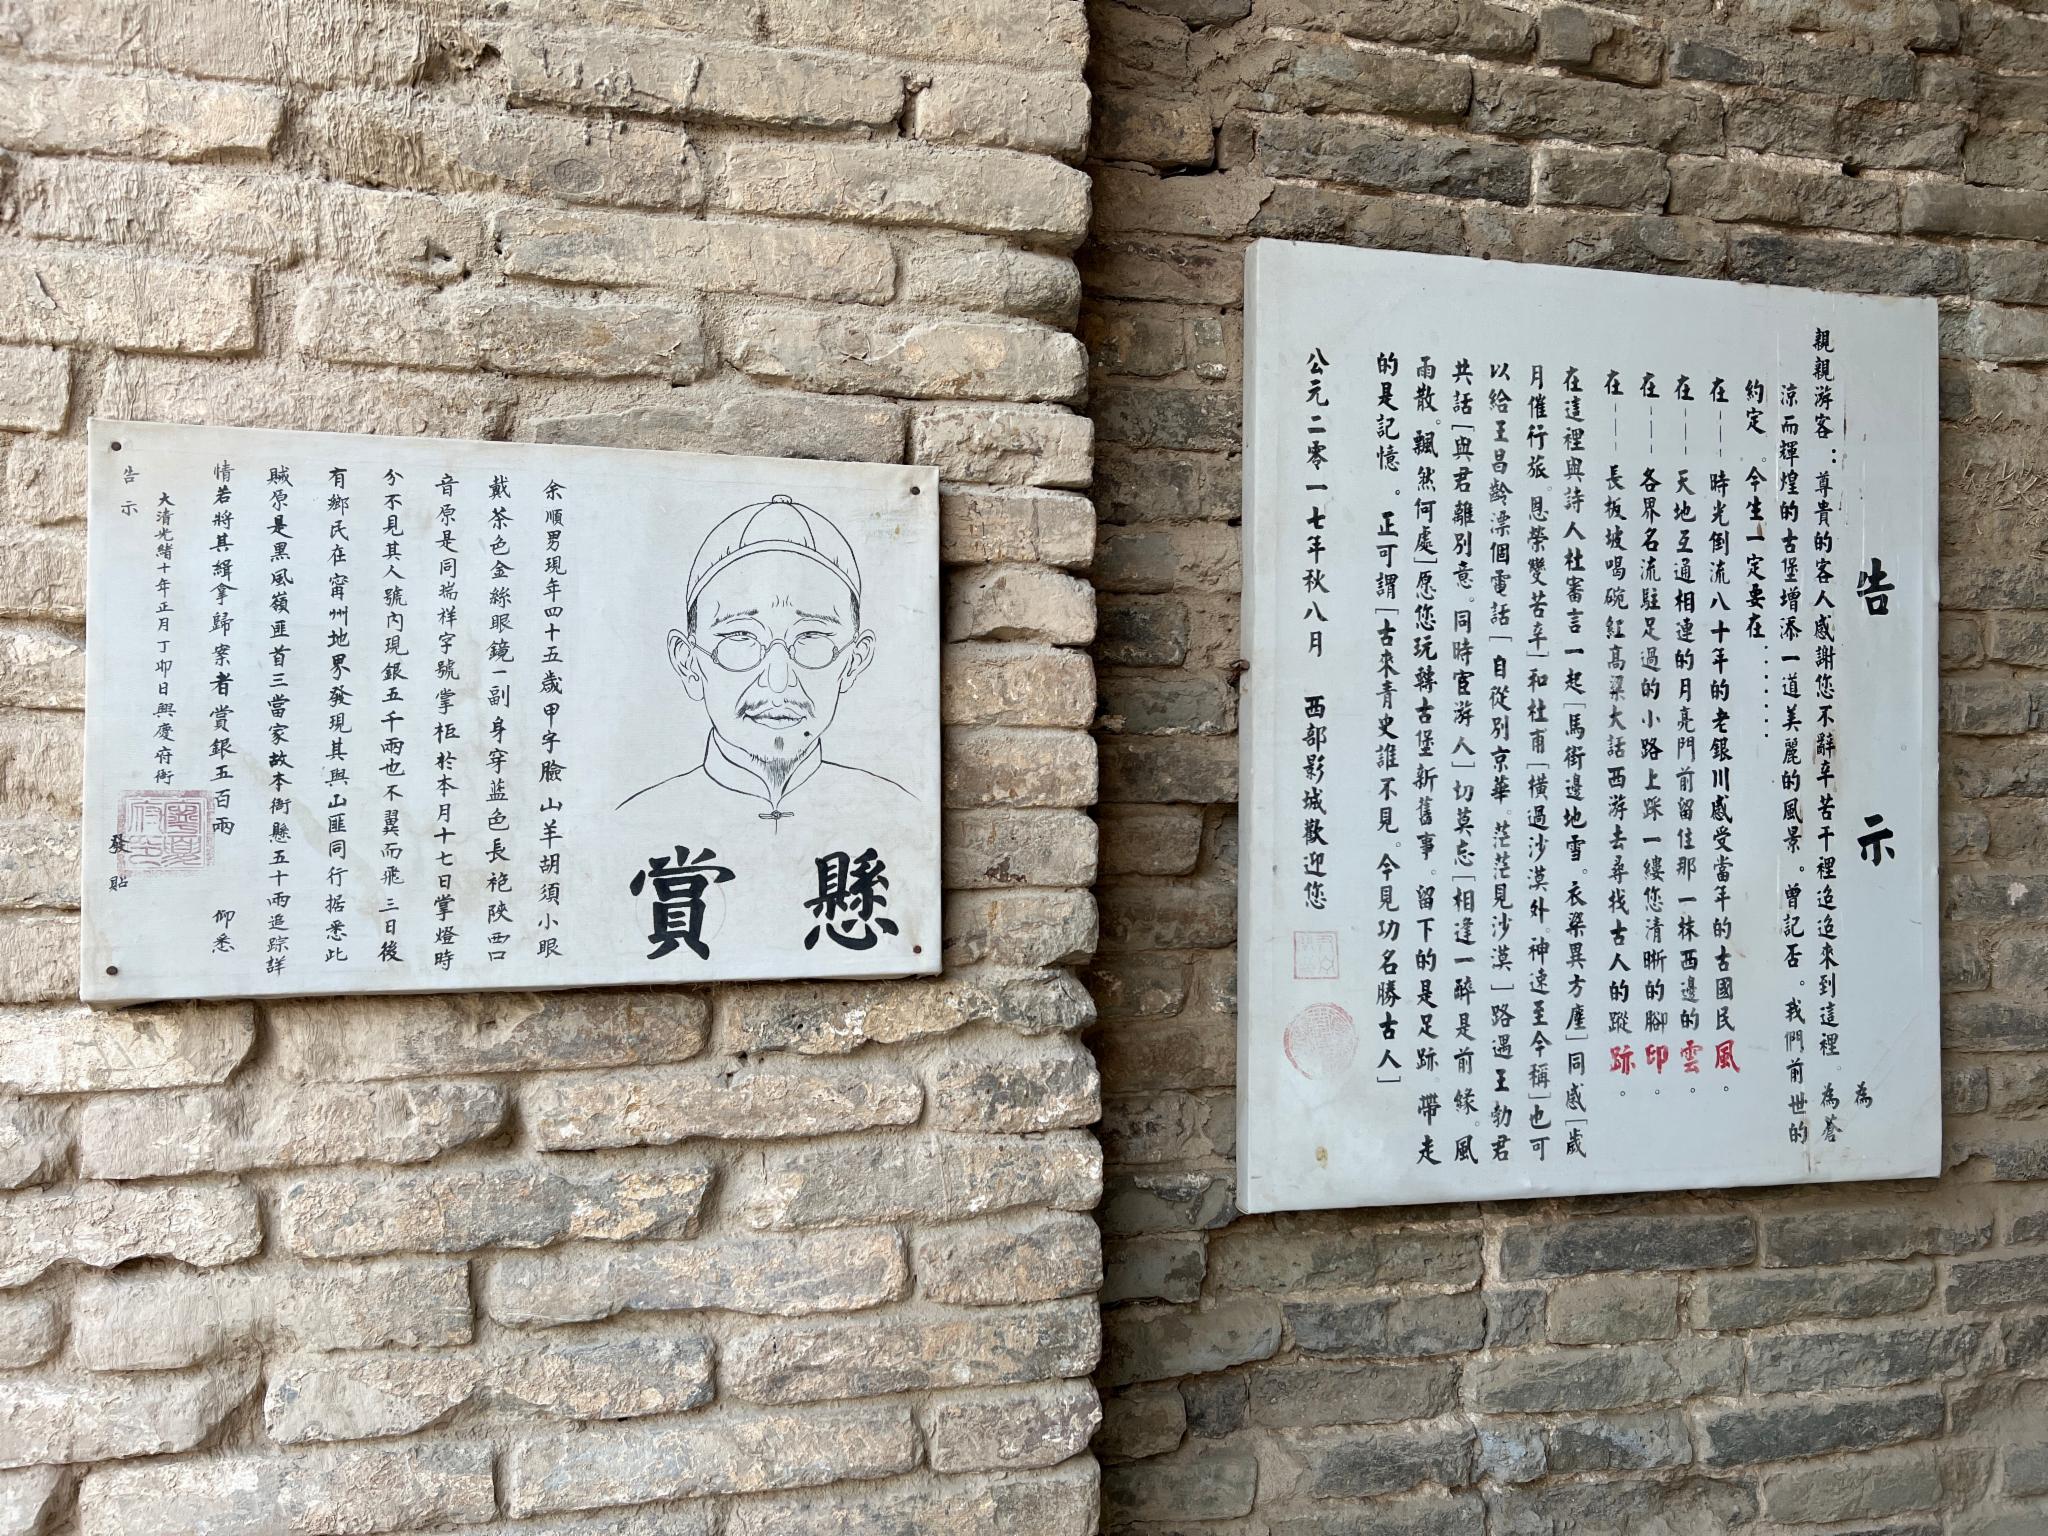 懸賞
余順男現年四十五歲甲字臉山羊胡須小眼
戴茶色金絲眼鏡一副身穿蓝色長袍陝西口
音原是同瑞样字號掌柜於本月十七日掌燈時
分不見其人號內現銀五千兩也不翼而飛三日後
有鄉民在甯州地界發現其與山匪同行据悉此
賊原是黑風嶺匪首三當家故本衙懸五十兩追踪詳
情若將其緝拿歸案者賞銀五百兩 仰悉
大清光緒十年正月丁卯日興慶府衙
告示 發貼
告示 為
親親游客：尊貴的客人感謝您不辭辛苦千裡迢迢來到這裡。為蒼
涼而輝煌的古堡增添一道美麗的風景。曾記否。我們前世的
約定。今生一定要在.......
在———時光倒流八十年的老銀川感受當年的古國民風。
在———天地互通相連的月亮門前留住那一抹西邊的雲。
在———各界名流駐足過的小路上踩一縷您清晰的腳印。
在———長板坡喝碗紅高粱大話西游去尋找古人的蹤跡。
在這裡與詩人杜審言一起[馬街邊地雪。衣染異方塵]同感[歲
月催行旅。恩榮變苦辛]和杜甫[橫過沙漠外。神速至今稱]也可
以給王昌齡漂個電話[自從別京華。茫茫見沙漠]路遇王勃君
共話[與君離別意。同時宦游人]切莫忘[相逢一醉是前緣。風
雨散。飄然何處]愿您玩轉古堡新舊事。留下的是足跡。帶走
的是記憶。正可謂[古來青史誰不見。今見功名勝古人]
公元二零一七年秋八月 西部影城歡迎您